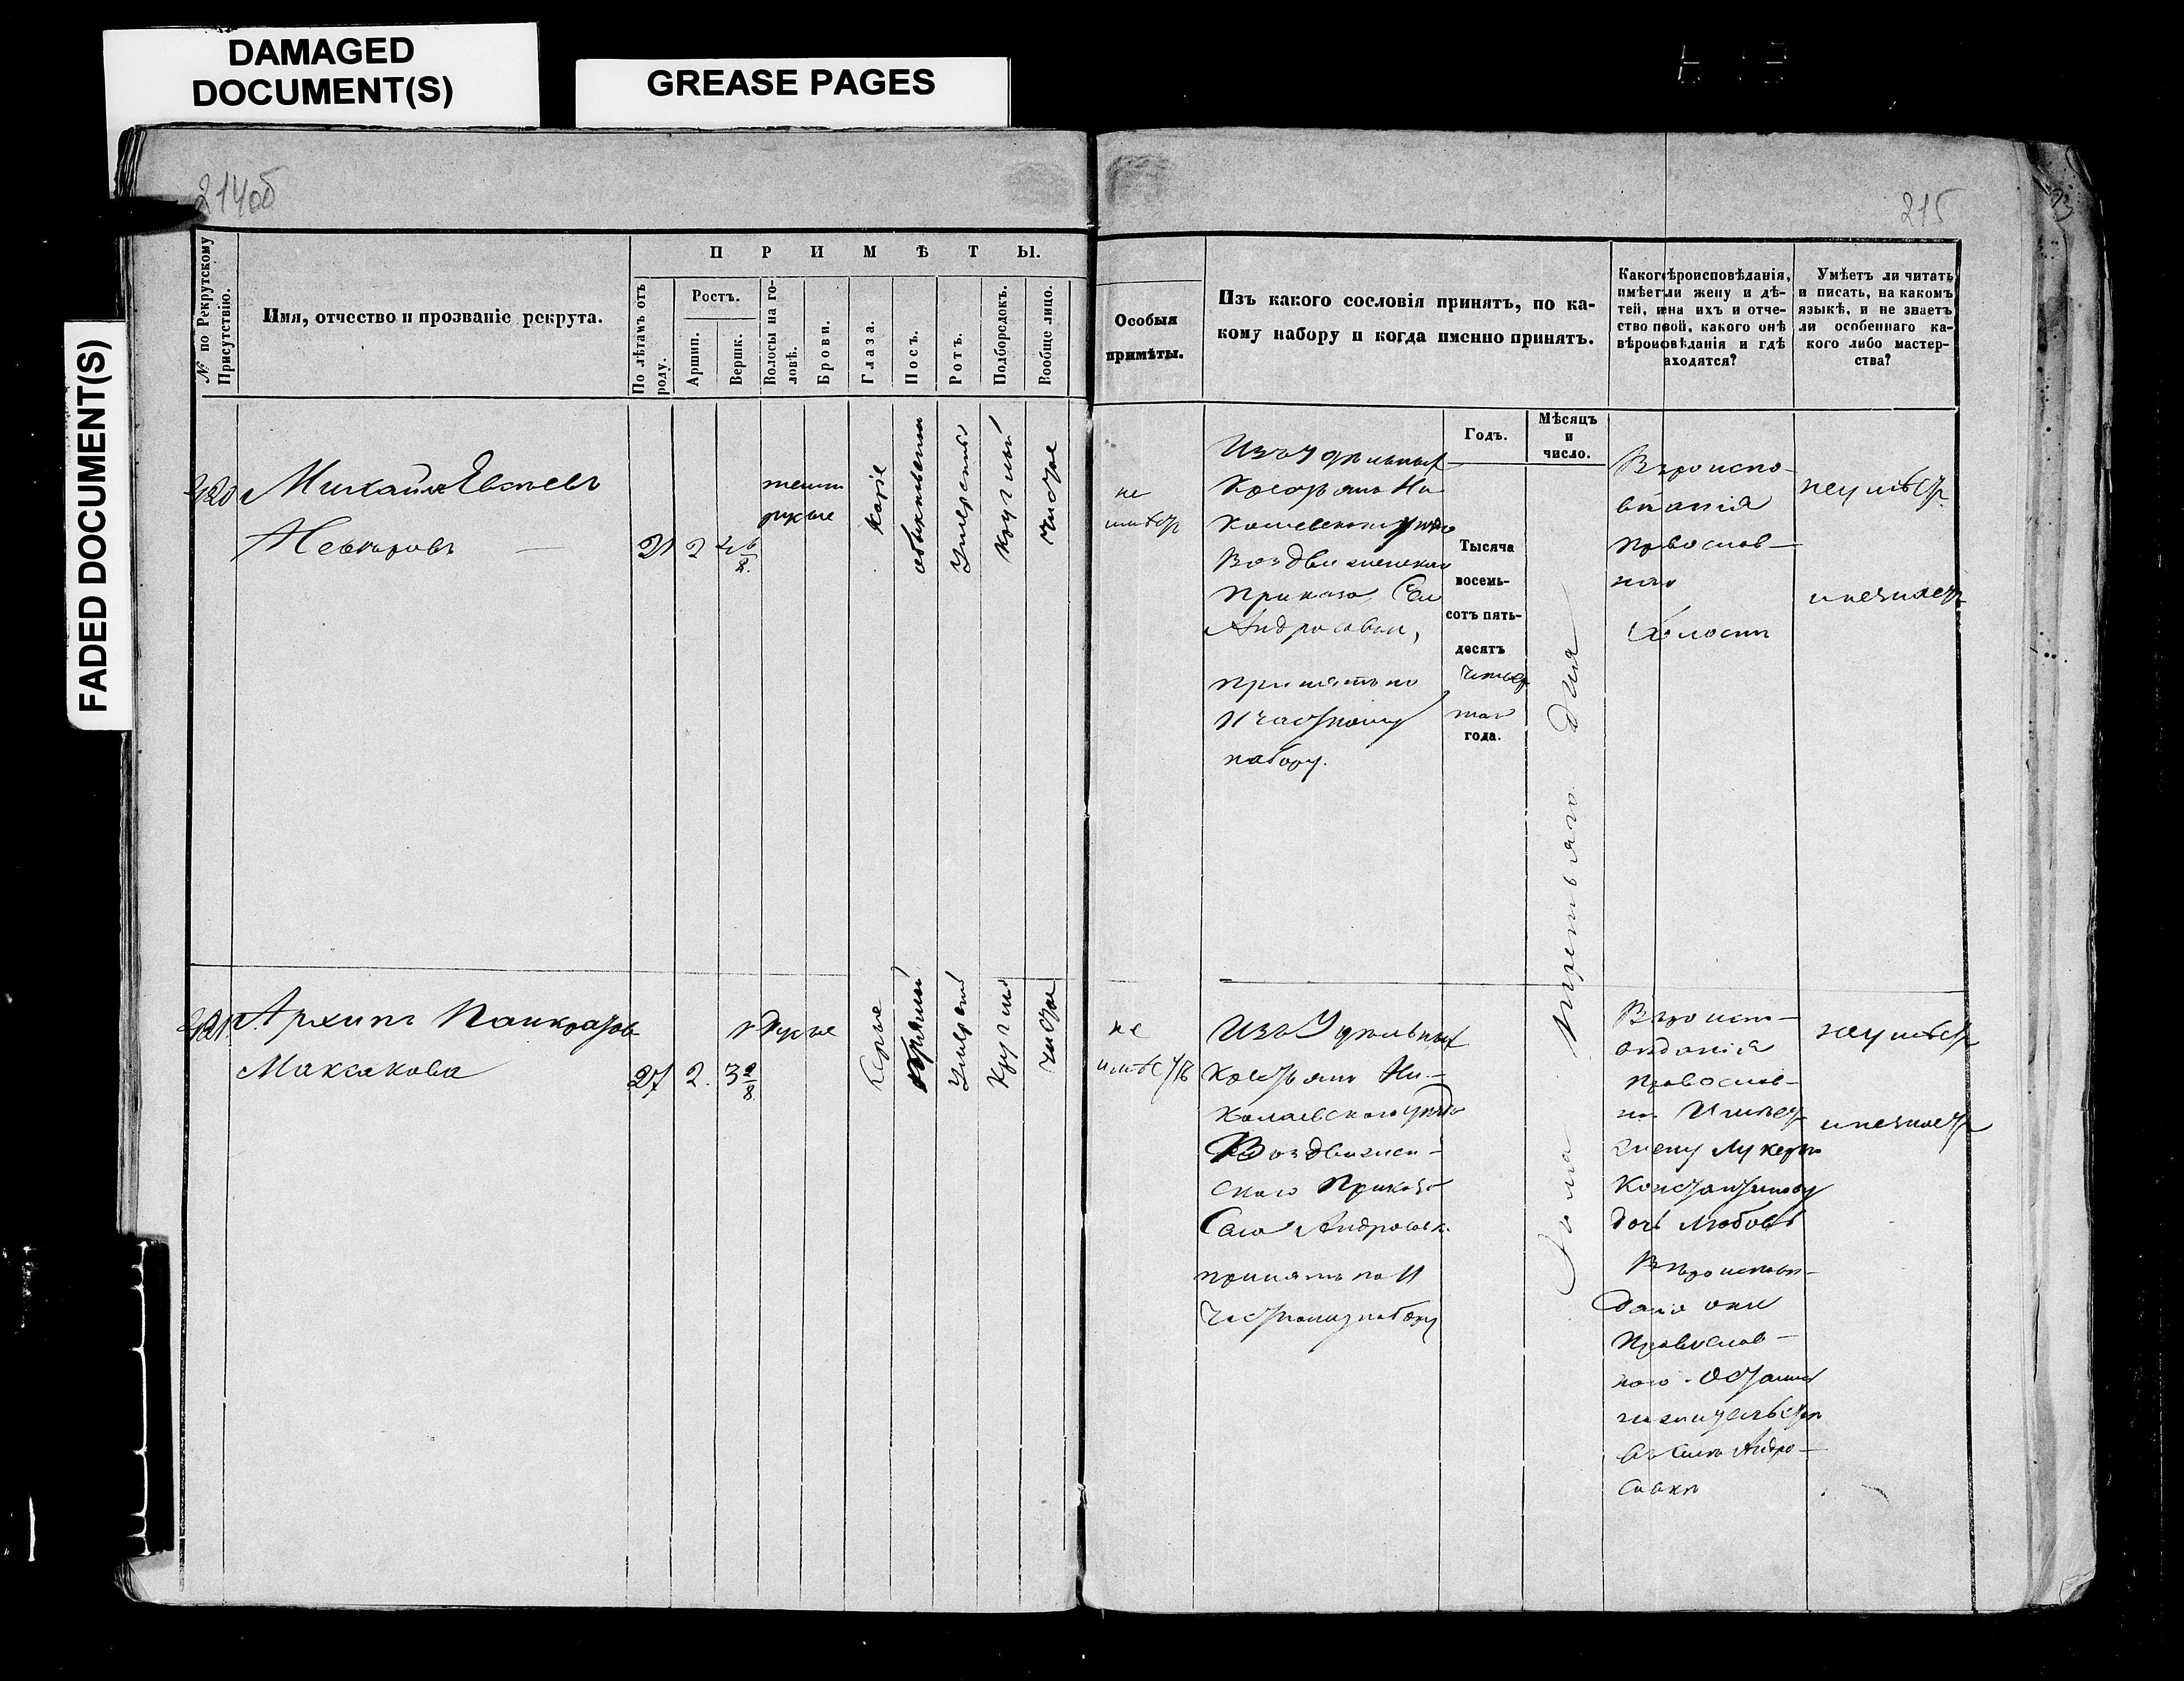 DAMAGED
DOCUMENT(S)
GREASE PAGES
FADED DOCUMENT(S)
214об
215
№ по Рекрутскому
Присутствію.
Имя, отчество и прозваніе рекрута.
ПРИМѢТЫ.
По лѣтамъ отъ
роду.
Ростъ.
Аршин.
Вершк.
Волосы на го-
ловѣ.
Брови.
Глаза.
Носъ.
Ротъ.
Подбородокъ.
Вообще лицо.
Особыя
примѣты.
Изъ какого сословія принятъ, по ка-
кому набору и когда именно принятъ.
Какого вѣроисповѣданія,
имѣетъ ли жену и дѣ-
тей, имена ихъ и отче-
ство первой, какого онѣ
вѣроисповѣданія и гдѣ
находятся?
Умѣетъ ли читать
и писать, на какомъ
языкѣ, и не знаетъ
ли особеннаго ка-
кого либо мастер-
ства?
Годъ.
Мѣсяцъ
и
число.
Михайла Евсѣевъ
21
2
темно
русые
каріе
обыкновенный
Умѣренный
круглый
чистое
не
имѣетъ
Изъ Удѣльныхъ
Крестьянъ Ни
колаевскаго уѣзда
Воздвиженскаго
Приказа Села
Андросовки,
принятъ по
11 частному
набору.
Тысяча
восемь-
сотъ пять-
десятъ
четвер
таго
года.
Іюля Третьяго дня
Вѣроиспо-
вѣданія
Православ-
наго
Холостъ
неумѣетъ
и незнаетъ
Архипъ Панкратовъ
Максакова
27
2.
3 2/8
Русые
Серые
прямый
Умѣренный
Круглый
чистое
не
имѣетъ
Изъ Удѣльныхъ
Крестьянъ Ни-
колаевскаго уѣзда
Воздвижен-
скаго Приказа
Села Андросовки
принятъ по 11
Частному набору
Вѣроиспо-
вѣданія
Православ-
на Имѣетъ
жену Лукерью
Константинову
дочь Любовь
Вѣроисповѣ-
данія онѣ
Православ-
наго. Остались
на жительствѣ
въ Селѣ Андро-
совкѣ
неумѣетъ
и незнаетъ